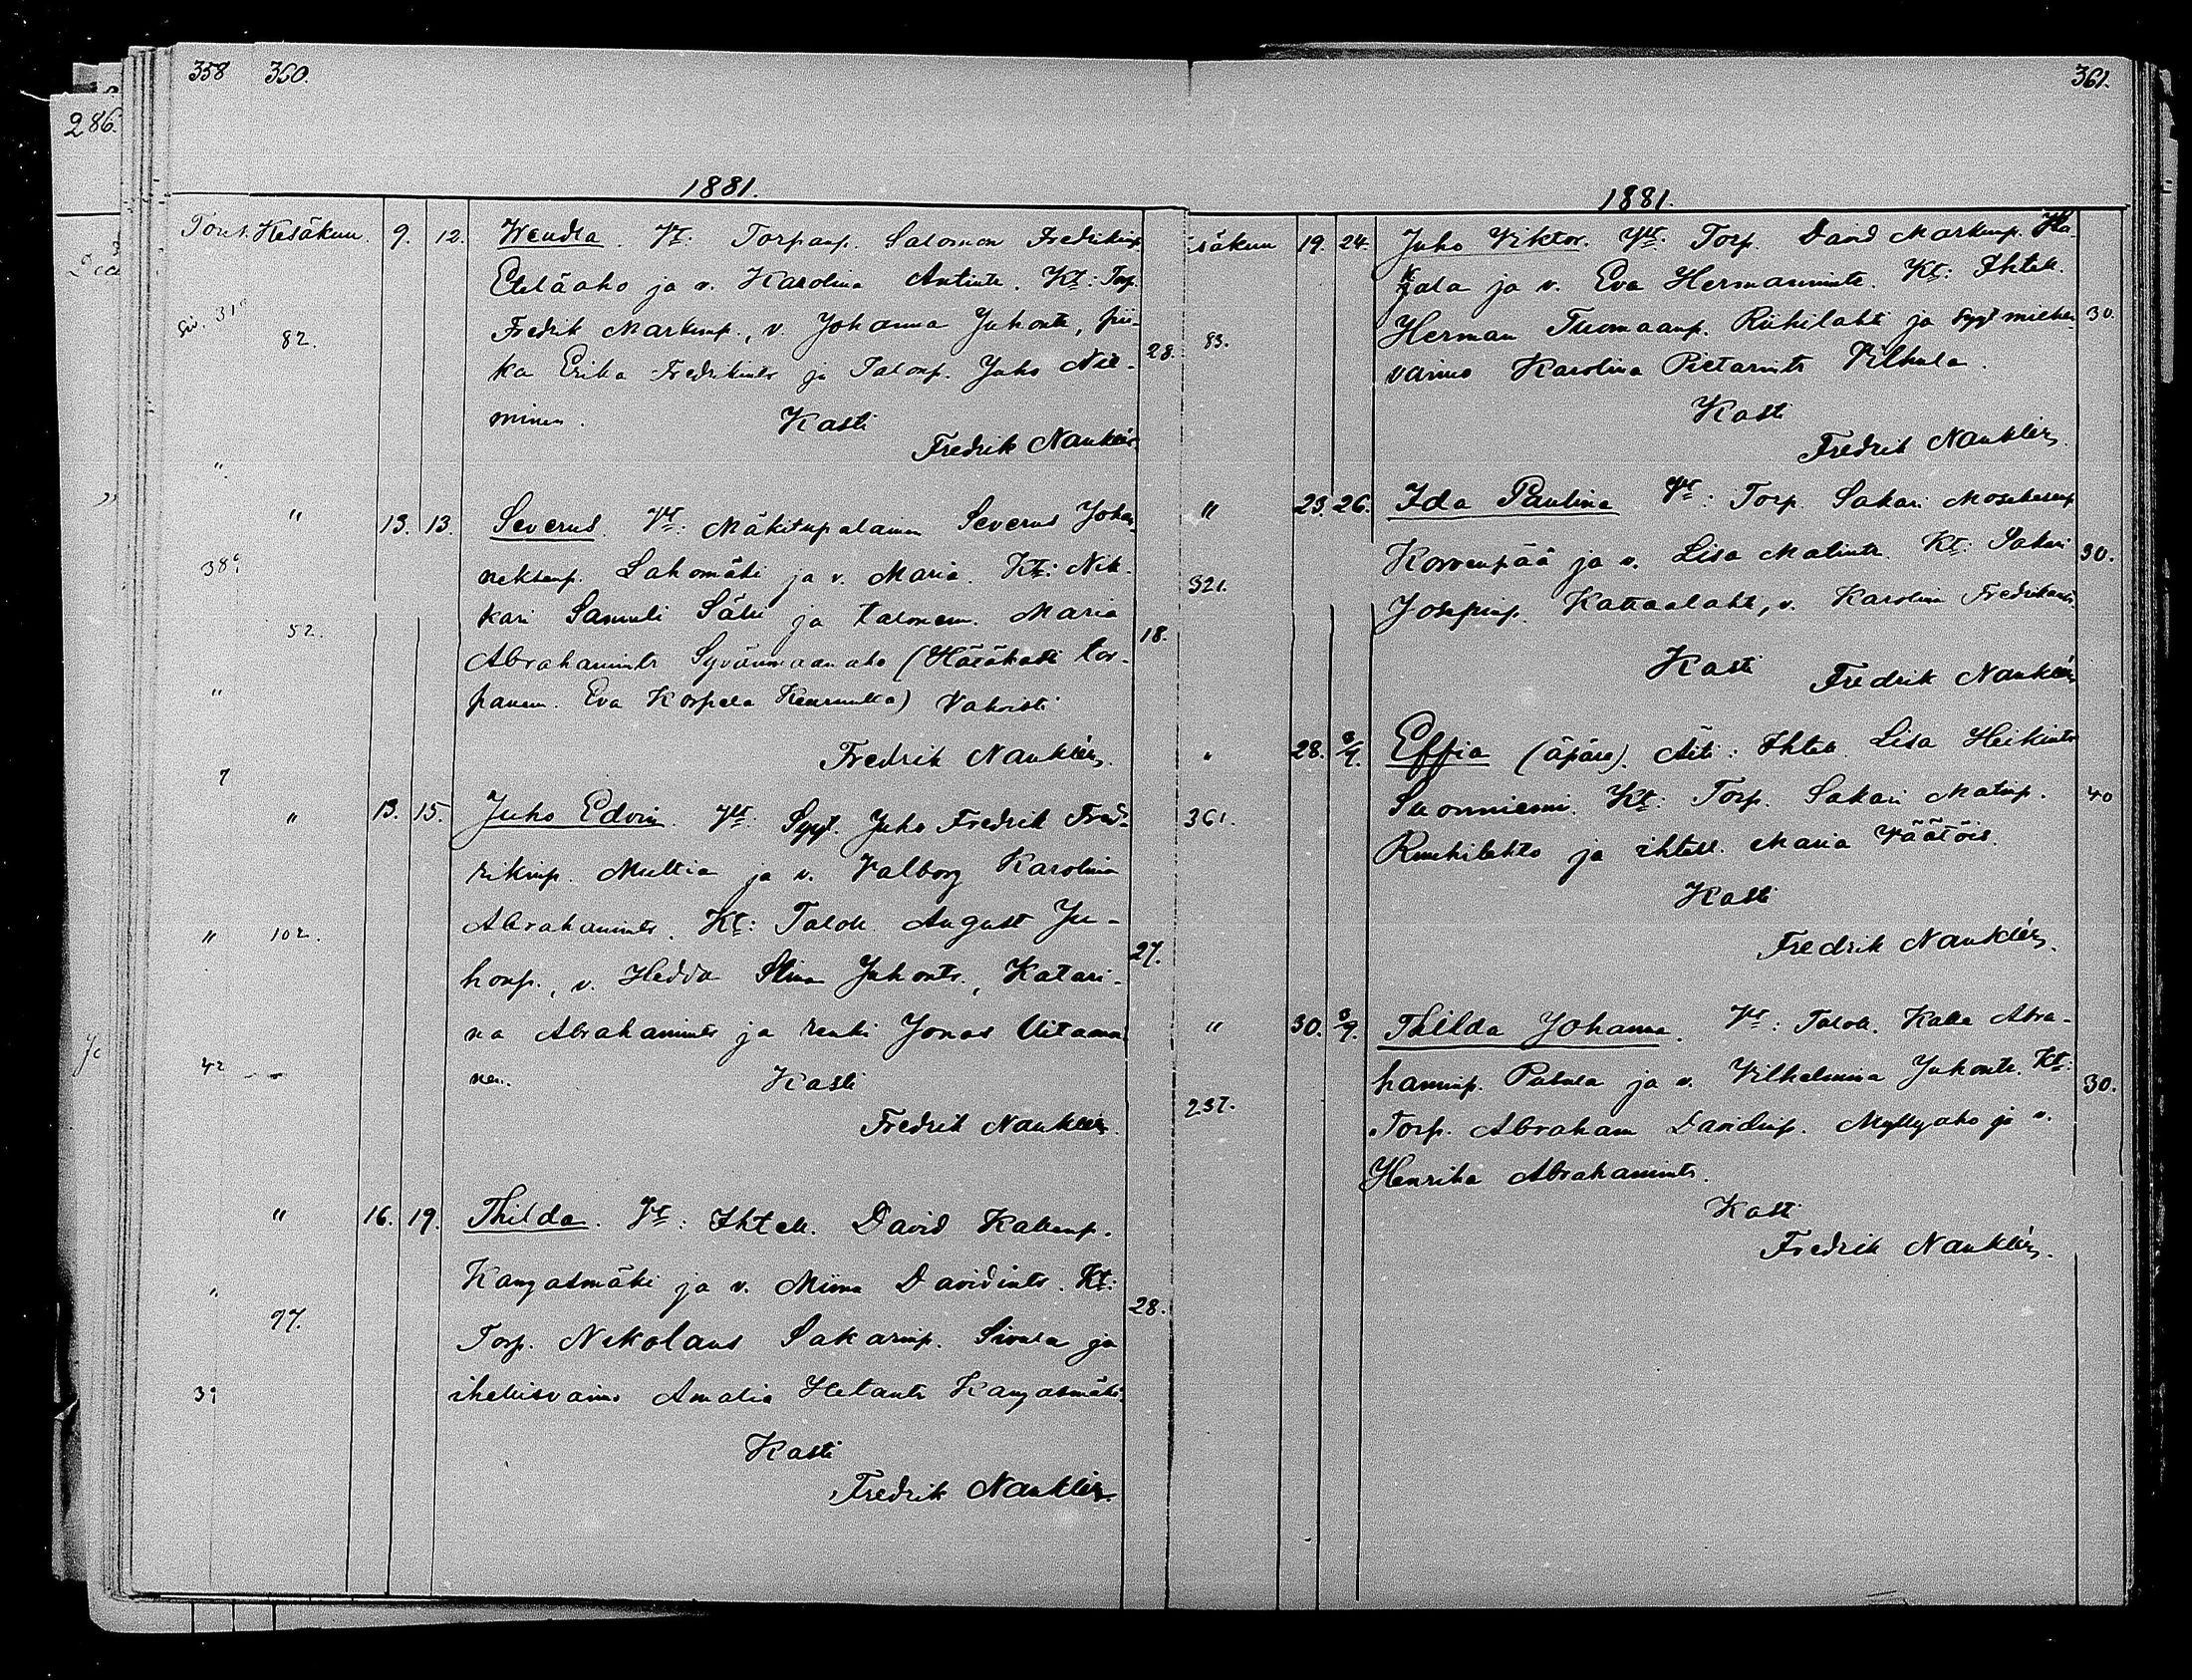 358 360.
286.
1881.
Kesäkuu. 9. 12. Wendla. Vt: Torpanp. Salomon Fredrikinp.
Eteläaho ja v. Karolina Antintr. Kt: Torp.
82. Fredrik Markunp., v. Johanna Juhontr, pii-
ka Erika Fredrikintr ja Talonp. Juho Nie- 28.
minen. Kasti
Fredrik Nauklér.
" 13. 13. Severus. Vt: Mäkitupalainen Severus Johan-
neksenp. Lahomäki ja v. Maria. Kt: Nik-
52. kari Samuli Säki ja talonem. Maria 18.
Abrahamintr Syvänmaanaho (Hätäkasti tor-
panem. Eva Korpela Keuruulta) Vahvisti
Fredrik Nauklér.
" 13. 15. Juho Edvin. Vt: Syyt. Juho Fredrik Fred-
rikinp. Multia ja v. Valborg Karolina
102. Abrahamintr. Kt: Talok. August Ju-
honp., v. Hedda Stina Juhontr., Katari- 27.
na Abrahamintr ja renki Jonas Uitamo-
nen. Kasti
Fredrik Nauklér.
" 16. 19. Thilda. Vt: Ihtell. David Kallenp.
Kangasmäki ja v. Miina Davidintr. Kt:
97. Torp. Nikolaus Sakarinp. Sivula ja 28.
ihellisvaimo Amalia Kangasmäki.
Kasti
Fredrik Nauklér.
361.
1881.
säkuu 19. 24. Juho Viktor. Vt: Torp. David Markunp. Ha-
kala ja v. Eva Hermannintr. Kt: Ihtell.
83. Herman Tuomaanp. Riihilahti ja syyt miehen 30.
vaimo Karolina Pietarintr Vilhula.
Kasti
Fredrik Nauklér.
" 23. 26. Ida Paulina Vt: Torp. Sakari Moseksenp
Korvenpää ja v. Lisa Matintr. Kt: Sakari 30.
321. Josepinp. Kattaalahti, v. Karolina Fredrikintr.
Kasti
Fredrik Nauklér
" 28. 3/7. Effia (äpärä). Äiti: Ihtell. Lisa Heikintr
361. Suonniemi. Kt: Torp. Sakari Matinp. 40
Ruuhilehto ja ihtell. Maria Väätöis.
Kasti
Fredrik Nauklér.
" 30. 3/7. Thilda Johanna. Vt: Talok. Kalle Abra-
haminp. Putula ja v. Vilhelmina Juhontr. Kt: 30.
237. Torp. Abraham Davidinp. Myllyaho ja v.
Henrika Abrahamintr.
Kasti
Fredrik Nauklér.